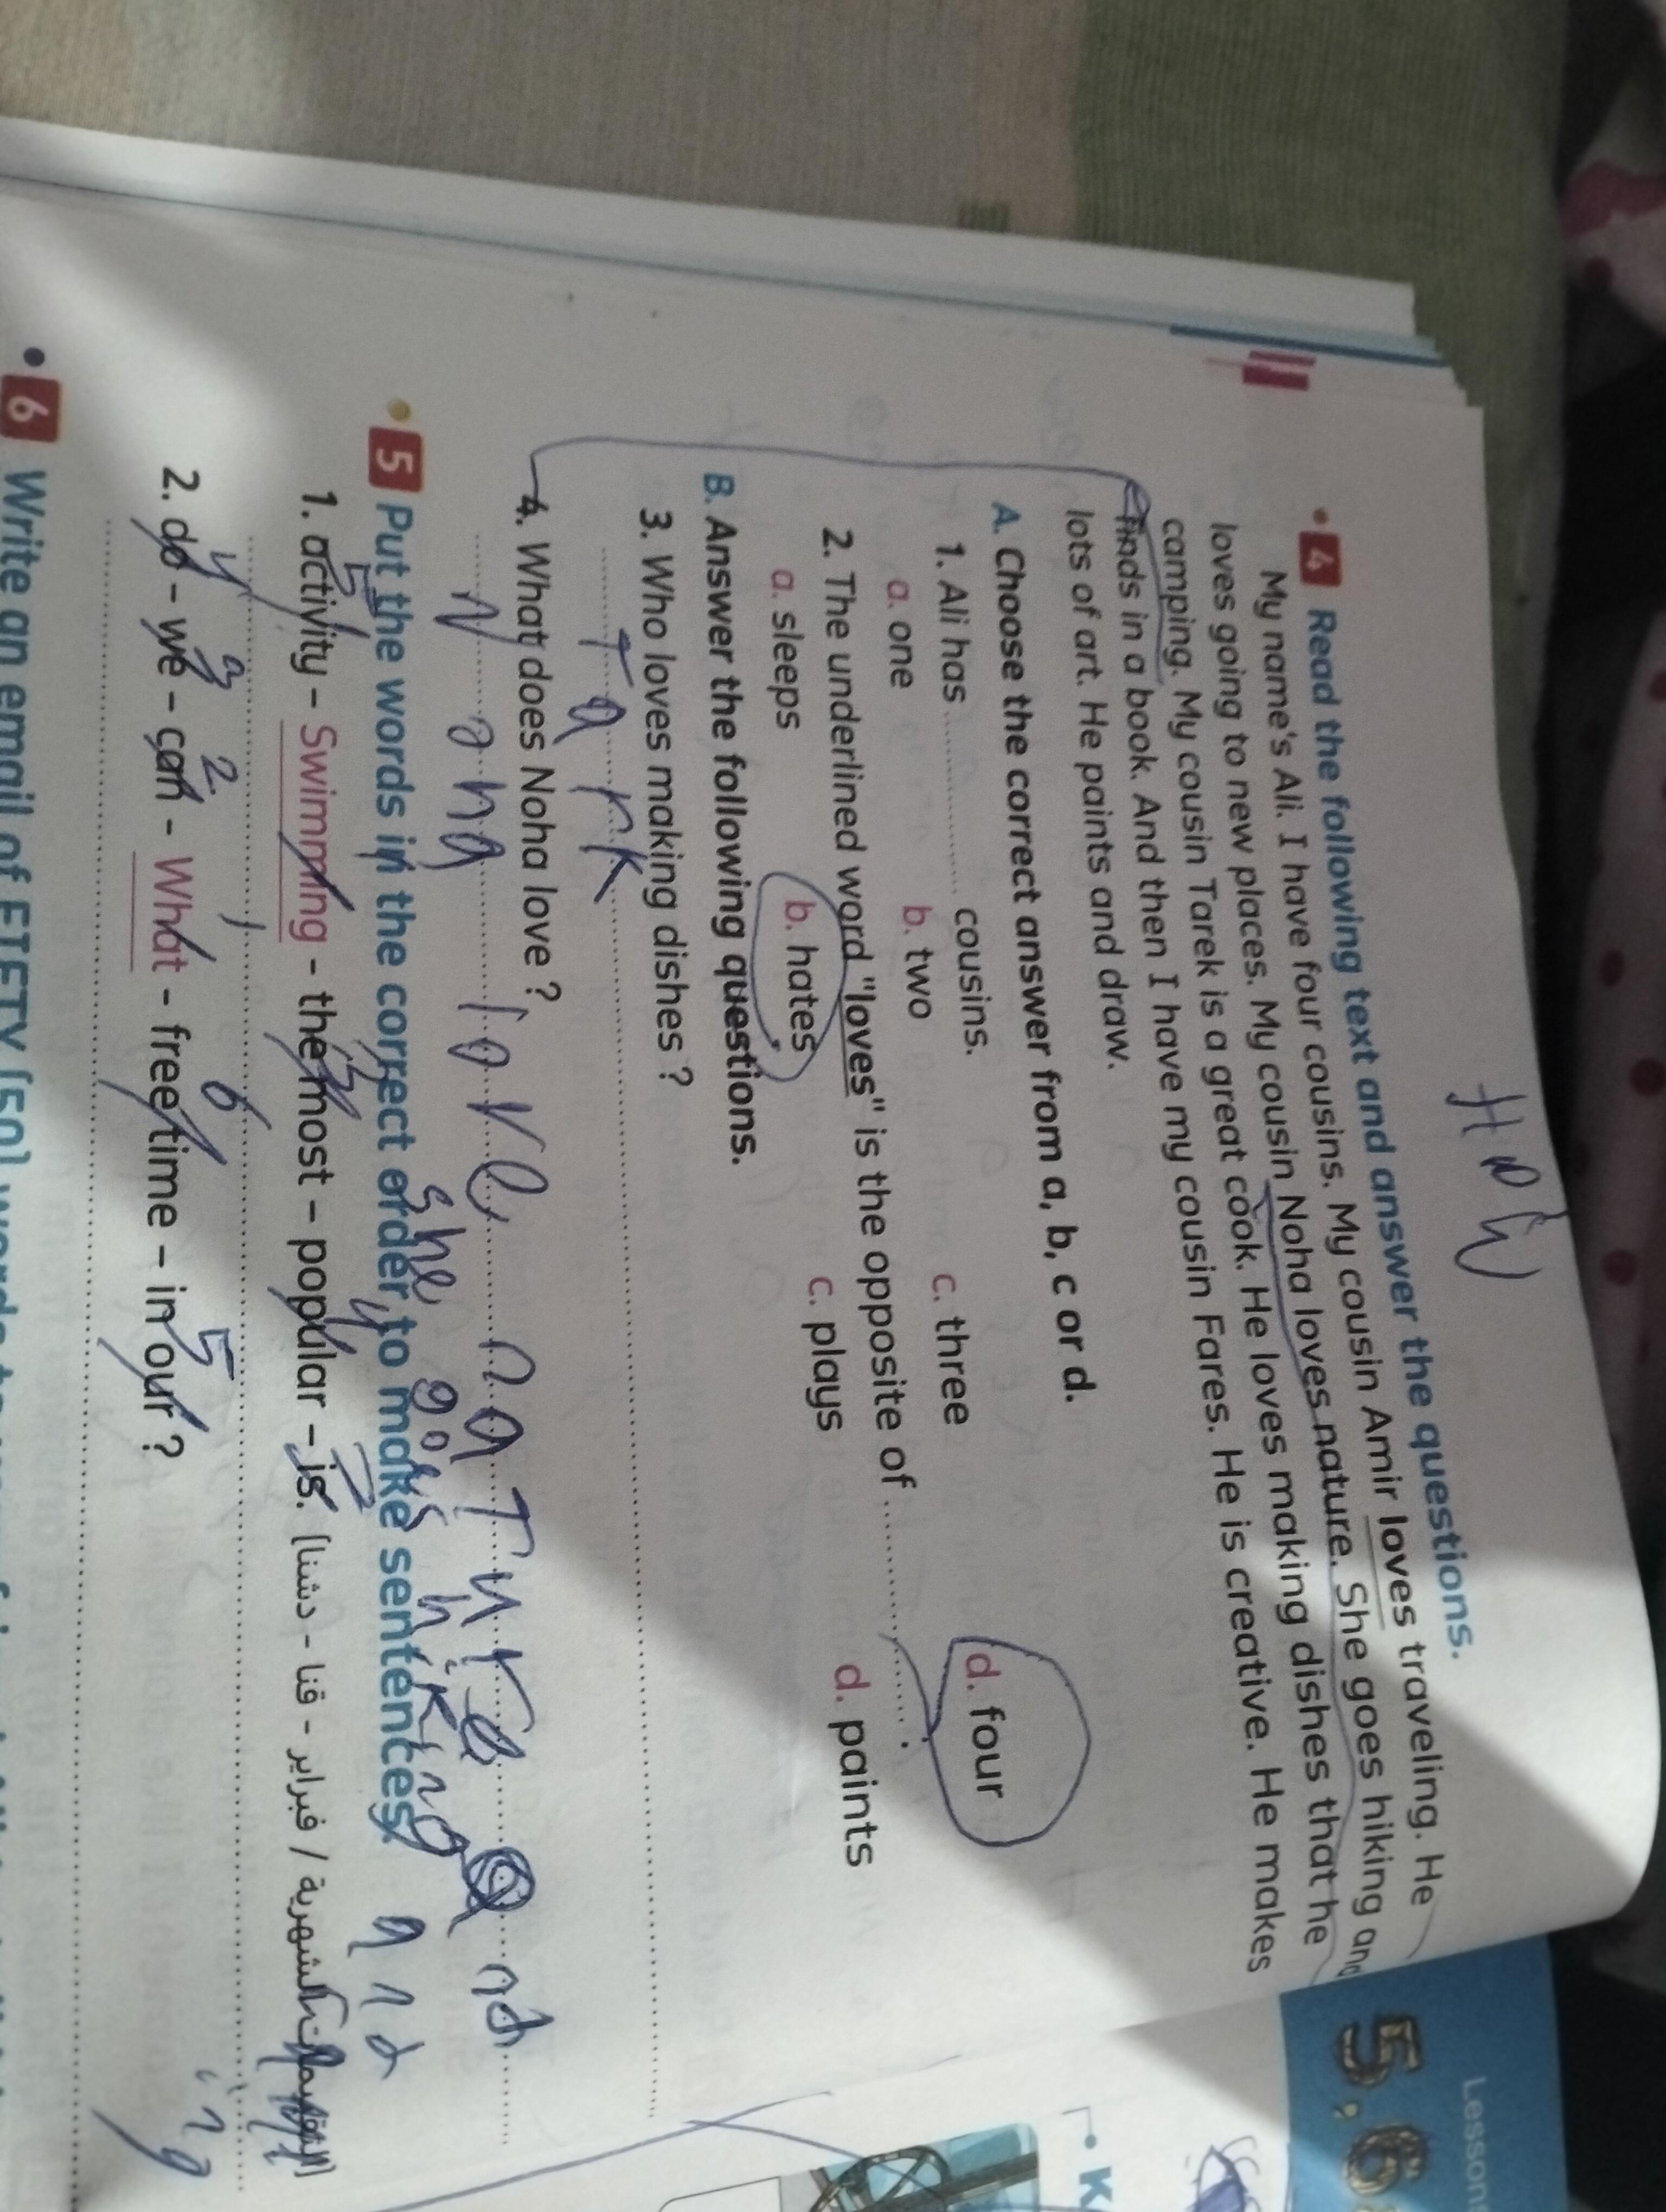 H.W
4 Read the following text and answer the questions.
My name's Ali. I have four cousins. My cousin Amir loves traveling. He
loves going to new places. My cousin Noha loves nature. She goes hiking and
camping. My cousin Tarek is a great cook. He loves making dishes that he
finds in a book. And then I have my cousin Fares. He is creative. He makes
lots of art. He paints and draw.
A. Choose the correct answer from a, b, c or d.
1. Ali has .......... cousins.
a. one b. two c. three d. four
2. The underlined word "loves" is the opposite of .......... .
a. sleeps b. hates c. plays d. paints
B. Answer the following questions.
3. Who loves making dishes ?
Tark
4. What does Noha love ?
Noha love naTure and
she goes hiking and
5 Put the words in the correct order to make sentences.
5 3 4 2
1. activity – Swimming – the most – popular – is. (التقييمات الشهرية / فبراير - قنا - دشنا)
4 3 2 1 6 5
2. do – we – can – What – free time – in our ?
6 Write an email of FIFTY (50) words to
Lesson
5,6